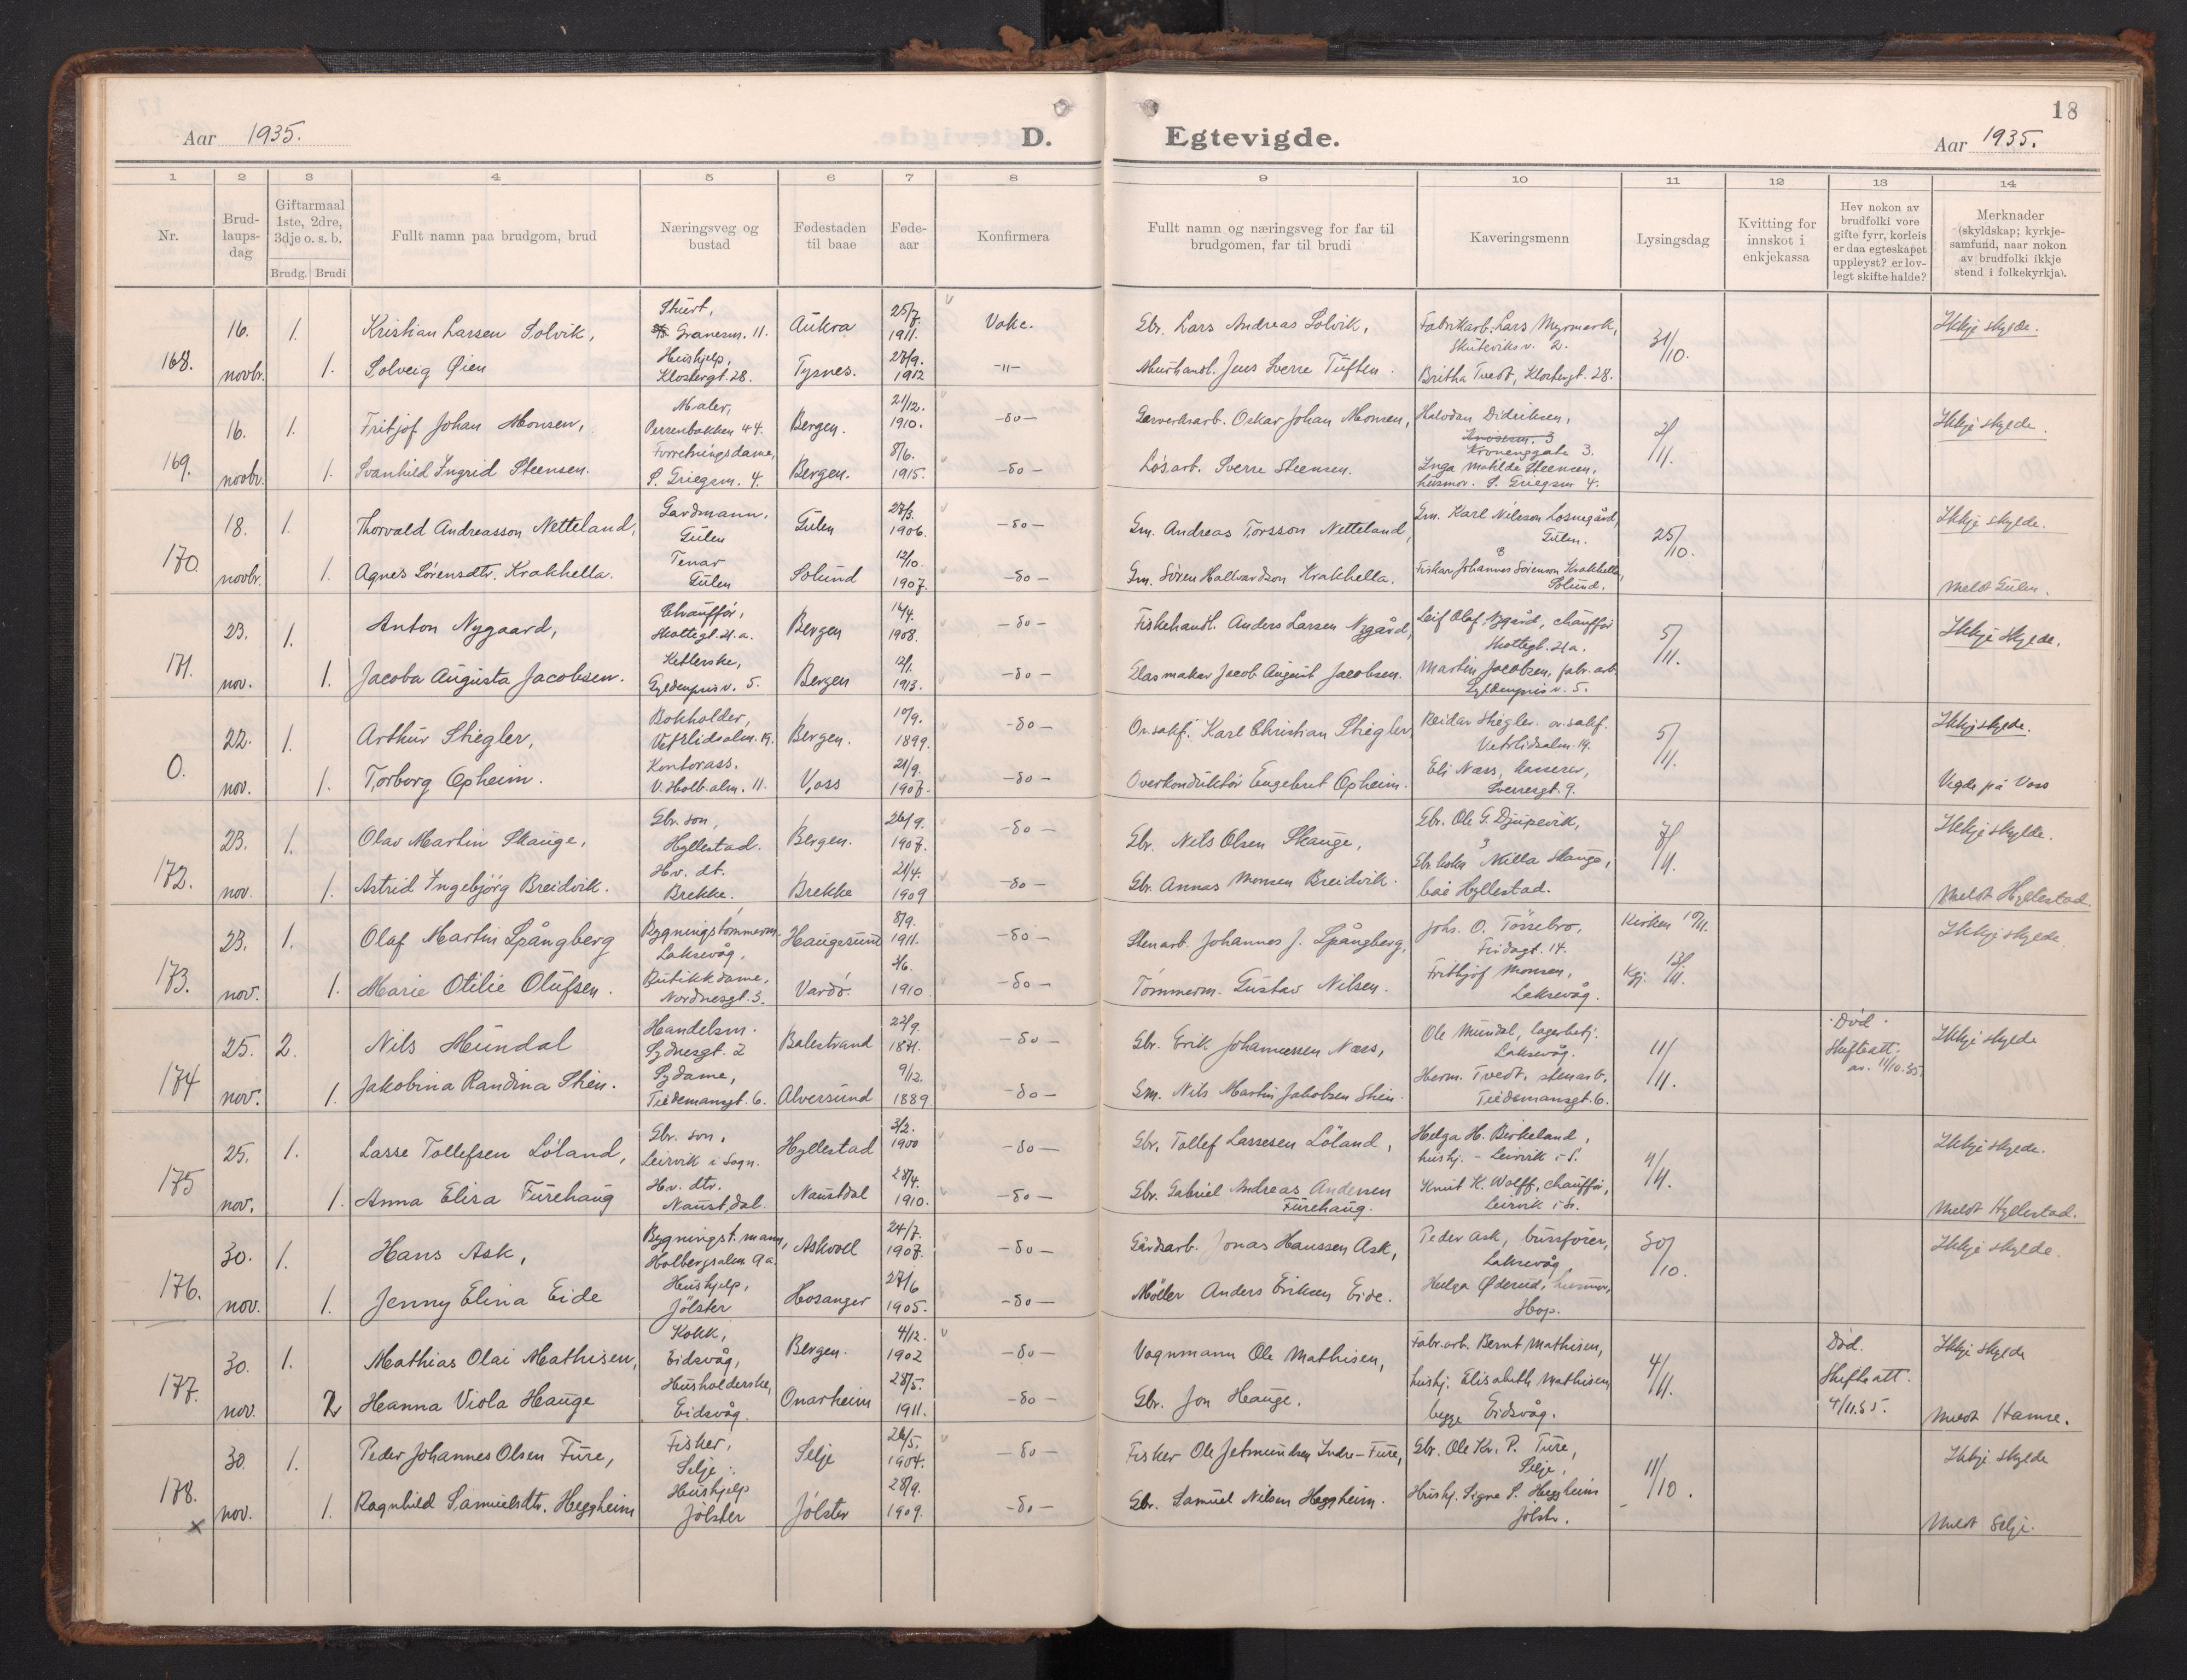 18
Aar 1935.
D.
Egtevigde.
Aar 1935.
1 2 3 4 5 6 7 8 9 10 11 12 13 14
Nr.
Brud-
laups-
dag
Giftarmaal
1ste, 2dre,
3dje o. s. b.
Brudg. Brudi
Fullt namn paa brudgom, brud
Næringsveg og
bustad
Fødestaden
til baae
Føde-
aar
Konfirmera
Fullt namn og næringsveg for far til
brudgomen, far til brudi
Kaveringsmenn
Lysingsdag
Kvitting for
innskot i
enkjekassa
Hev nokon av
brudfolki vore
gifte fyrr, korleis
er daa egteskapet
uppleyst? er lov-
legt skifte halde?
Merknader
(skyldskap; kyrkje-
samfund, naar nokon
av brudfolki ikkje
stend i folkekyrkja).
168. 16. novbr.
1. Kristian Larsen Solvik, Stuert, Granesm. 11. Aukra 25/7. 1911. Vakc. Gbr. Lars Andreas Solvik, Fabrikarb. Lars Myrmark, Skuteviksv. 2. 31/10. Ikkje skylde.
1. Solveig Øien Hushjelp, Klostergt. 28. Tysnes. 28/9. 1912 -"- Jens Sverre Tuften. Britha Tvedt, Klostergt. 28.
169. 16. novbr.
1. Fritjof Johan Monsen, Maler, Persenbakken 44. Bergen. 21/12. 1910. -do- Oskar Johan Monsen, Halvdan Didriksen, Kroneggate 3. 2/11. Ikkje skylde.
1. Svanhild Ingrid Steensen. Forretningsdame, S. Griegsm. 4. Bergen. 8/6. 1915. -do- Løsarb. Sverre Steensen. Inga Mathilde Steensen, husmor. S. Griegsm 4.
170. 18. novbr.
1. Thorvald Andreasson Netteland, Gardmann, Gulen Gulen 28/3. 1906. -do- Gm. Andreas Torsson Netteland, Gm. Karl Nilsson Losnegård, Gulen. 25/10. Ikkje skylde.
1. Agnes Sørensdtr. Krakhella. Tenar Gulen Solund 12/10. 1907. -do- Gm. Søren Hallvardson Krakhella. Fiskar Johannes Sørenson Krakhella, Solund. Meldt Gulen.
171. 23. nov.
1. Anton Nygaard, Chauffør, Skottegt. 21.a. Bergen 16/4. 1908. -do- Fiskehandl. Anders Larsen Nygård, Leif Olaf Nygård, chauffør Skottegt. 21a. 5/11. Ikkje skylde.
1. Jacoba Augusta Jacobsen. Gyldenprisv. 5. Bergen 12/1. 1913. -do- Glasmakar Jacob August Jacobsen. Martin Jacobsen, fabr. arb. Gyldenprisv. 5.
0. 22. nov.
1. Arthur Stiegler, Bokholder, Vetrlidsalm. 19. Bergen. 10/9. 1899. -do- Or. sakf. Karl Christian Stiegler Reidar Stiegler. or. sakf. Vetrlidsalm. 19. 5/11. Ikkje skylde.
1. Torborg Opheim. Kontorass. V. Holb. alm. 11. Voss 21/9. 1907. -do- Overkonduktør Engebret Opheim. Eli Næss, kasserer, Sverresgt. 9. Vigde på Voss
172. 23. nov.
1. Olav Martin Skauge, Gbr. son, Hyllestad. Bergen. 26/9. 1907. -do- Gbr. Nils Olsen Skauge, Gbr. Ole G. Djupevik, 7/11. Ikkje skylde.
1. Astrid Ingebjörg Breidvik. Hv. dt. Brekke. Brekke 21/4. 1909 -do- Gbr. Annas Monsen Breidvik. Milla Skauge, baae Hyllestad. Meldt Hyllestad.
173. 23. nov.
1. Olaf Martin Spångberg Bygningstömmerm. Laksevåg. Haugesund 8/9. 1911. -do- Stenarb. Johannes J. Spångberg, Johs. O. Tösebro, Fridagt. 14. Kirken 10/11. Ikkje skylde
1. Marie Otilie Olufsen. Butikkdame, Nordnesgt. 3. Vardö. 3/6. 1910 -do- Tømmerm. Gustav Nilsen. Frithjof Monsen, Laksevåg. 12/11.
174 25. nov.
2. Nils Mundal Handelsm. Sydnesgt. 2 Balestrand 22/9. 1871. -do- Gbr. Erik Johannessen Næss, Ole Mundal, lagerbetj. Laksevåg. 11/11. Död. Skifteatt. av. 11/10.35. Ikkje skylde
1. Jakobina Randina Stien. Sydame, Tiedemansgt. 6. Alversund 9/12. 1889 -do- Gm. Nils Martin Jakobsen Stien. Herm. Tvedt, stenarb. Tiedemansgt. 6.
175 25. nov.
1. Lasse Tollefsen Löland, Gbr. son, Leirvik i Sogn. Hyllestad 3/2. 1900 -do- Gbr. Tollef Lassesen Löland, Helga H. Birkeland, hushj. - Leirvik i S. 4/11. Ikkje skylde.
1. Anna Elisa Furehaug Hv. dtr. Naustdal. Naustdal 28/4. 1910. -do- Gbr. Gabriel Andreas Andersen Furehaug. Knut K. Wolff, chauffør, Leirvik i S. Meldt Hyllestad.
176. 30. nov.
1. Hans Ask, Bygningst. mann, Holbergsalm 9a. Askvoll 24/7. 1907. -do- Gårdsarb. Jonas Hanssen Ask, Peder Ask, bussfører, Laksevåg 30/10. Ikkje skylde.
1. Jenny Elina Eide Hushjelp, Jölster Hosanger 27/6 1905. -do- Möller Anders Eriksen Eide. Helga Øderud, husmor, Hop.
177. 30. nov.
1. Mathias Olai Mathisen, Kokk, Eidsvåg, Bergen. 4/12. 1902 -do- Vognmann Ole Mathisen, Fabr. arb. Bernt Mathisen, 4/11. Död. Skifteatt. 4/11.35. Ikkje skylde
2 Hanna Viola Hauge Husholderske, Eidsvåg. Onarheim 28/5. 1911. -do- Gbr. Jon Hauge. hushj. Elisabeth Mathisen begge Eidsvåg. Meldt Hamre.
178. 30 nov.
1. Peder Johannes Olsen Fure, Fisker, Selje. Selje 26/5. 1904. -do- Fisker Ole Jetmundsen Indre-Fure, Gbr. Ole Kr. P. Fure, Selje, 11/10. Ikkje skylde
1. Ragnhild Samuelsdtr. Heggheim Hushjelp Jölster Jölster 28/9. 1909. -do- Gbr. Samuel Nilsen Heggheim. Hushj. Signe S. Heggheim Jölstr. Meldt Selje.
x